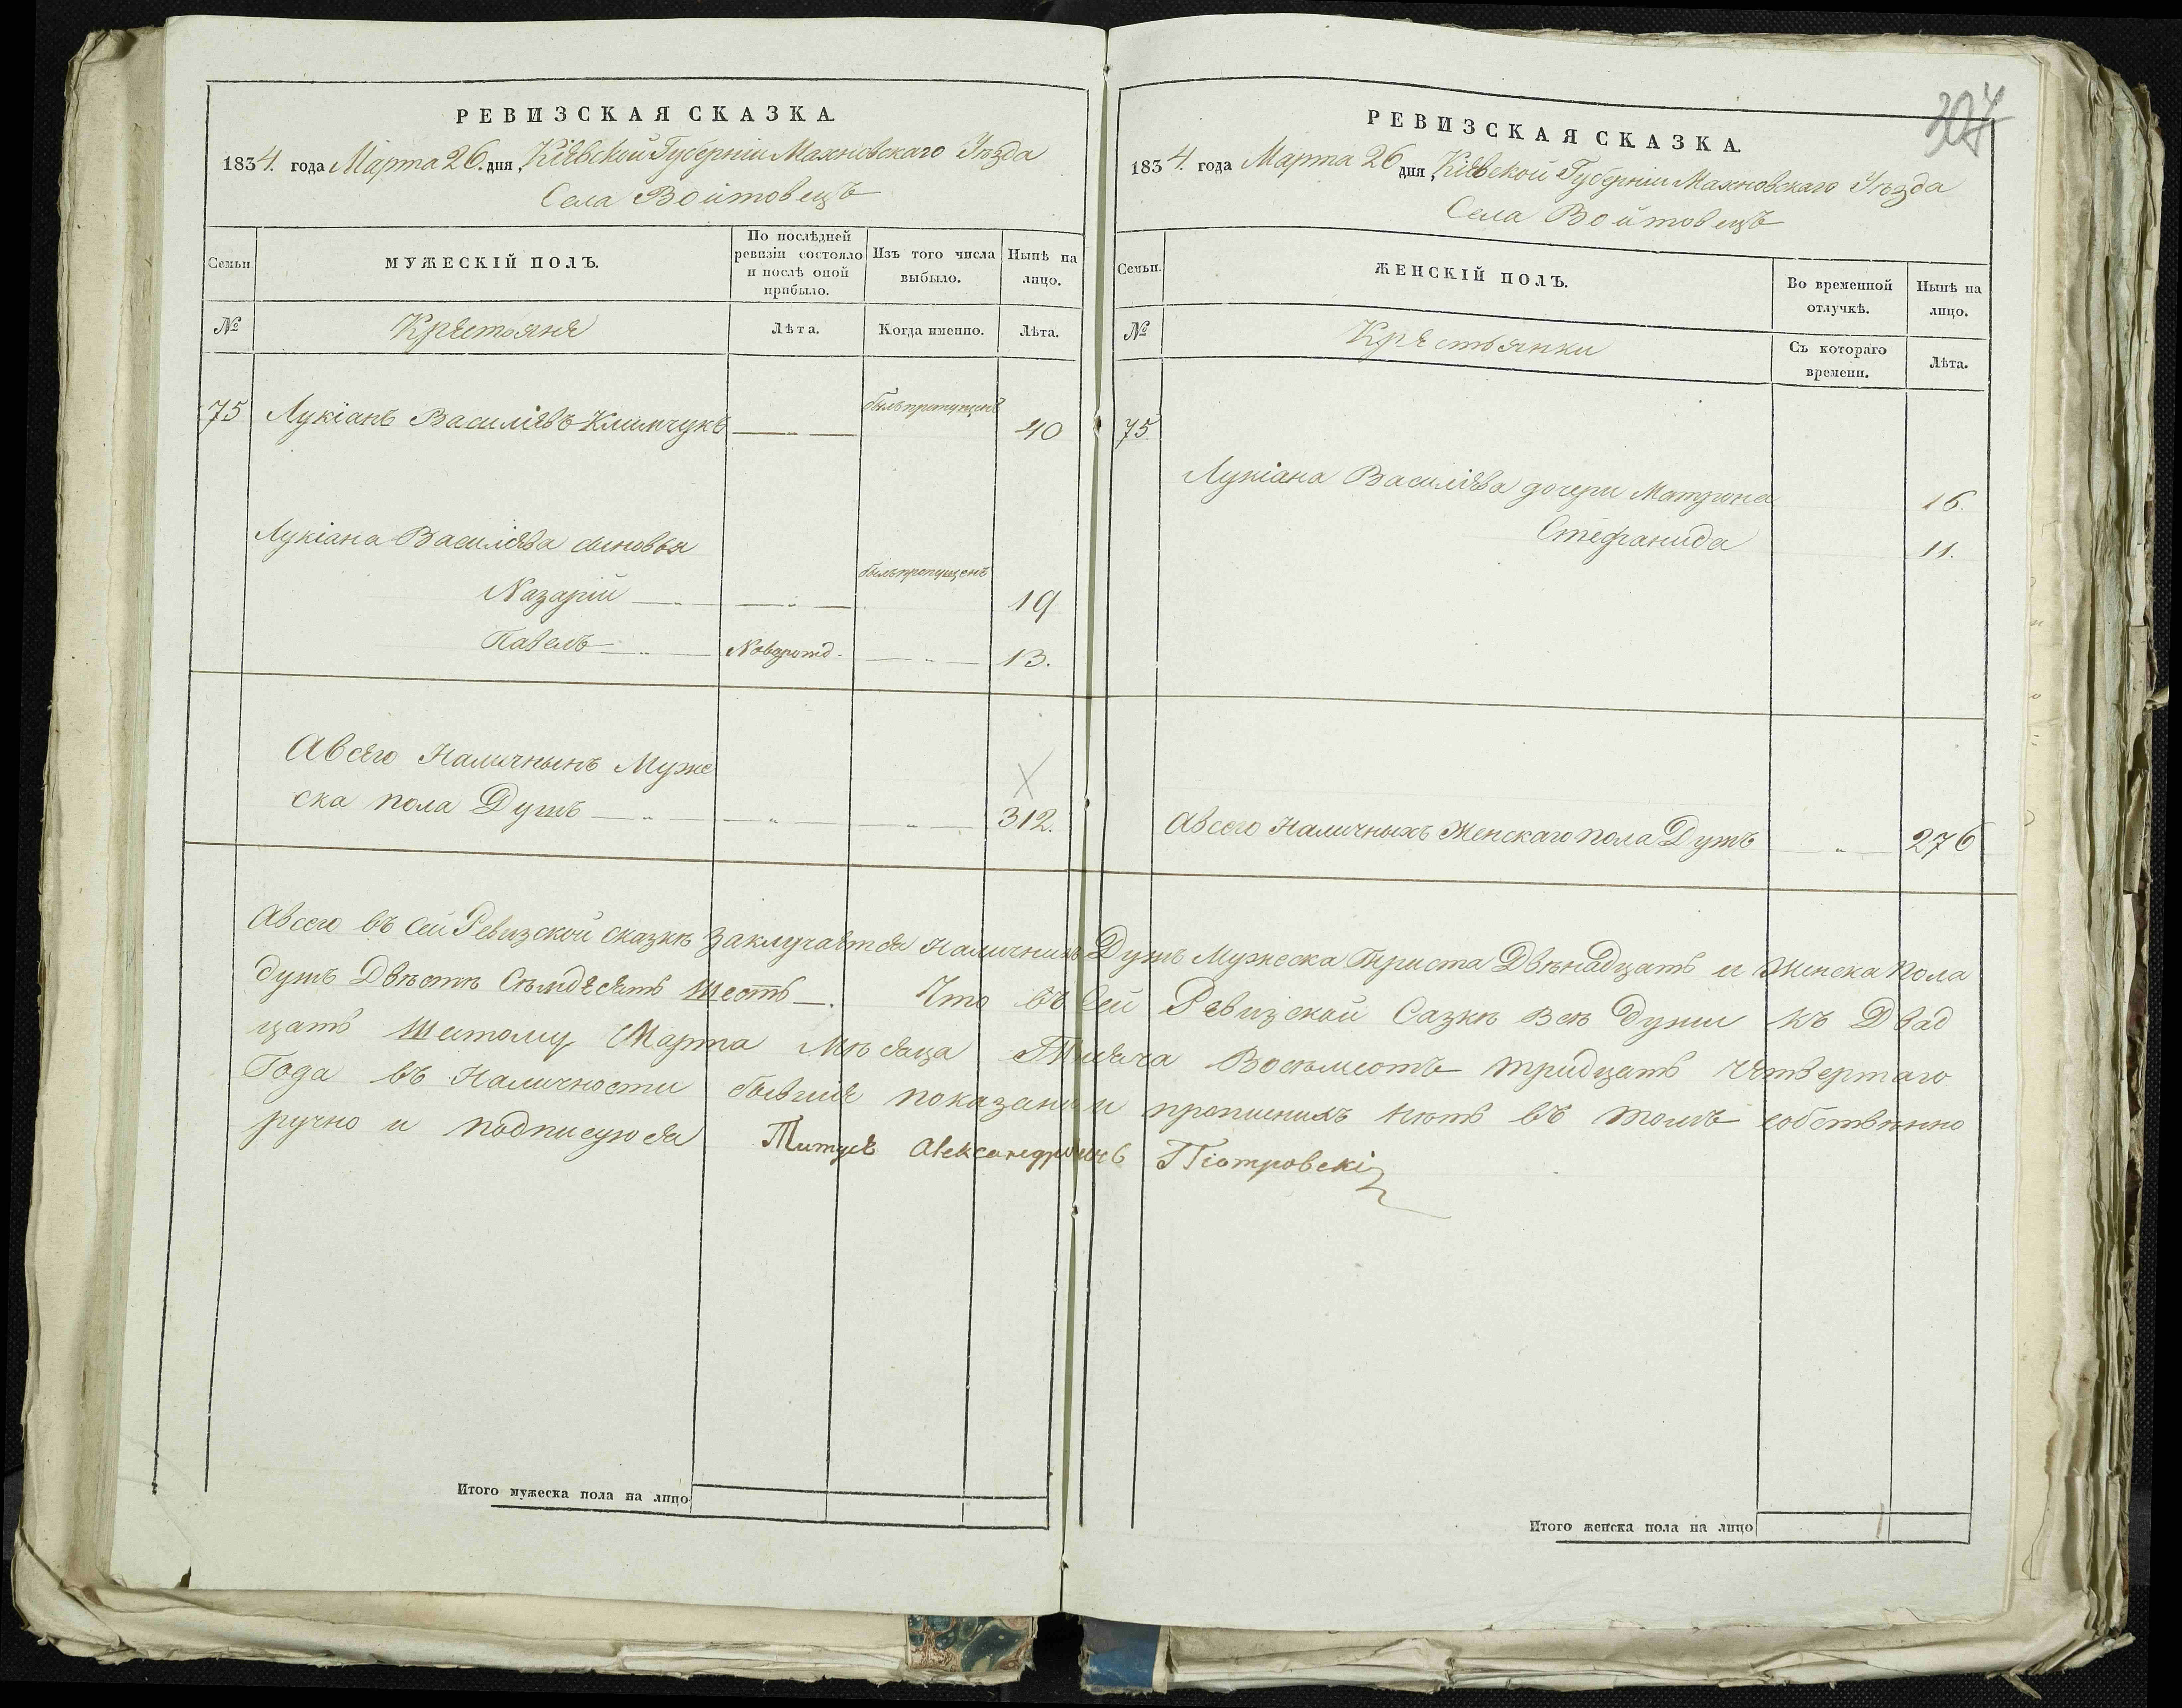 РЕВИЗСКАЯ СКАЗКА.
1834. года Марта 26. дня, Кіевской Губерніи Махновскаго Уѣзда
Села Войтовецъ
Семьи.
МУЖЕСКІЙ ПОЛЪ.
По послѣдней ревизіи состояло и послѣ оной прибыло.
Изъ того числа выбыло.
Нынѣ на лицо.
№
Крестояне
Лѣта.
Когда именно.
Лѣта.
75 Лукіанъ Василіевъ Климчукъ — „ — былъ пропущенъ 40
Лукіана Василіева сыновья
Назарій — „ — — „ — былъ пропущенъ 19
Павелъ — „ — Новорожд. — „ — 13.
Авсего Наличныхъ Муже
ска пола Душъ — „ — — „ — — „ — 312.
РЕВИЗСКАЯ СКАЗКА.
1834. года Марта 26 дня, Кіевской Губерніи Махновскаго Уѣзда
Села Войтовецъ
Семьи.
ЖЕНСКІЙ ПОЛЪ.
Во временной отлучкѣ.
Нынѣ на лицо.
№
Крестьянки
Съ котораго времени.
Лѣта.
75.
Лукіана Василіева дочери Матрона 16.
Стефанида 11.
Авсего Наличныхъ Женскаго пола Душъ — „ — 276
Авсего въ сей Ревизской сказкѣ Заключается Наличнихъ Душъ Мужеска Триста Двѣнадцать и Женска Пола
душъ Двѣстѣ Сѣмдесятъ Шесть —. Что въ Сей Ревизской Сазкѣ Всѣ души къ Двад
цать Шестому Марта Мѣсяца Тисяча Восѣмсотъ тридцать Четвертаго
Года въ Наличности бывшіе показани и прописнихъ нѣтъ въ томъ собствѣнно
ручно и подписуюся Титусъ Александровичъ Піотровскій
Итого мужеска пола на лицо
Итого женска пола на лицо